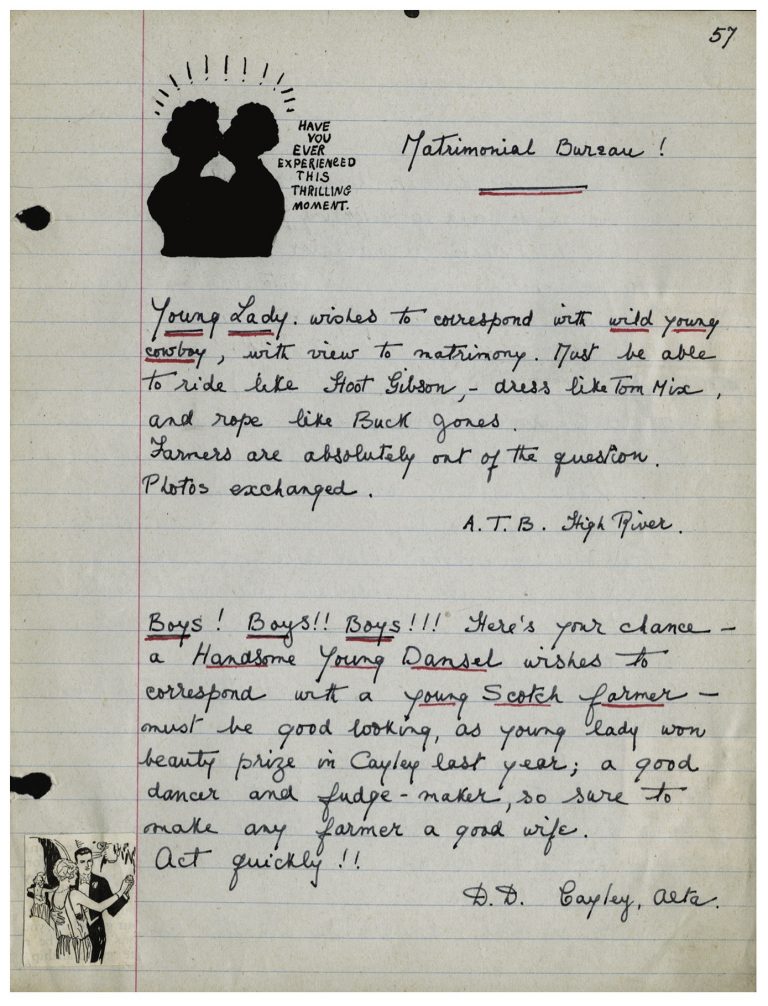 57
HAVE
YOU
EVER
EXPERIENCED
THIS
THRILLING
MOMENT.
Matrimonial Bureau !
Young Lady. wishes to correspond with wild young
cowboy, with view to matrimony. Must be able
to ride like Hoot Gibson, - dress like Tom Mix,
and rope like Buck Jones.
Farmers are absolutely out of the question.
Photos exchanged.
A.T.B. High River.
Boys ! Boys!! Boys!!! Here's your chance -
a Handsome Young Damsel wishes to
correspond with a young Scotch farmer -
must be good looking, as young lady won
beauty prize in Cayley last year; a good
dancer and fudge-maker, so sure to
make any farmer a good wife.
Act quickly !!
D.D. Cayley, Alta.